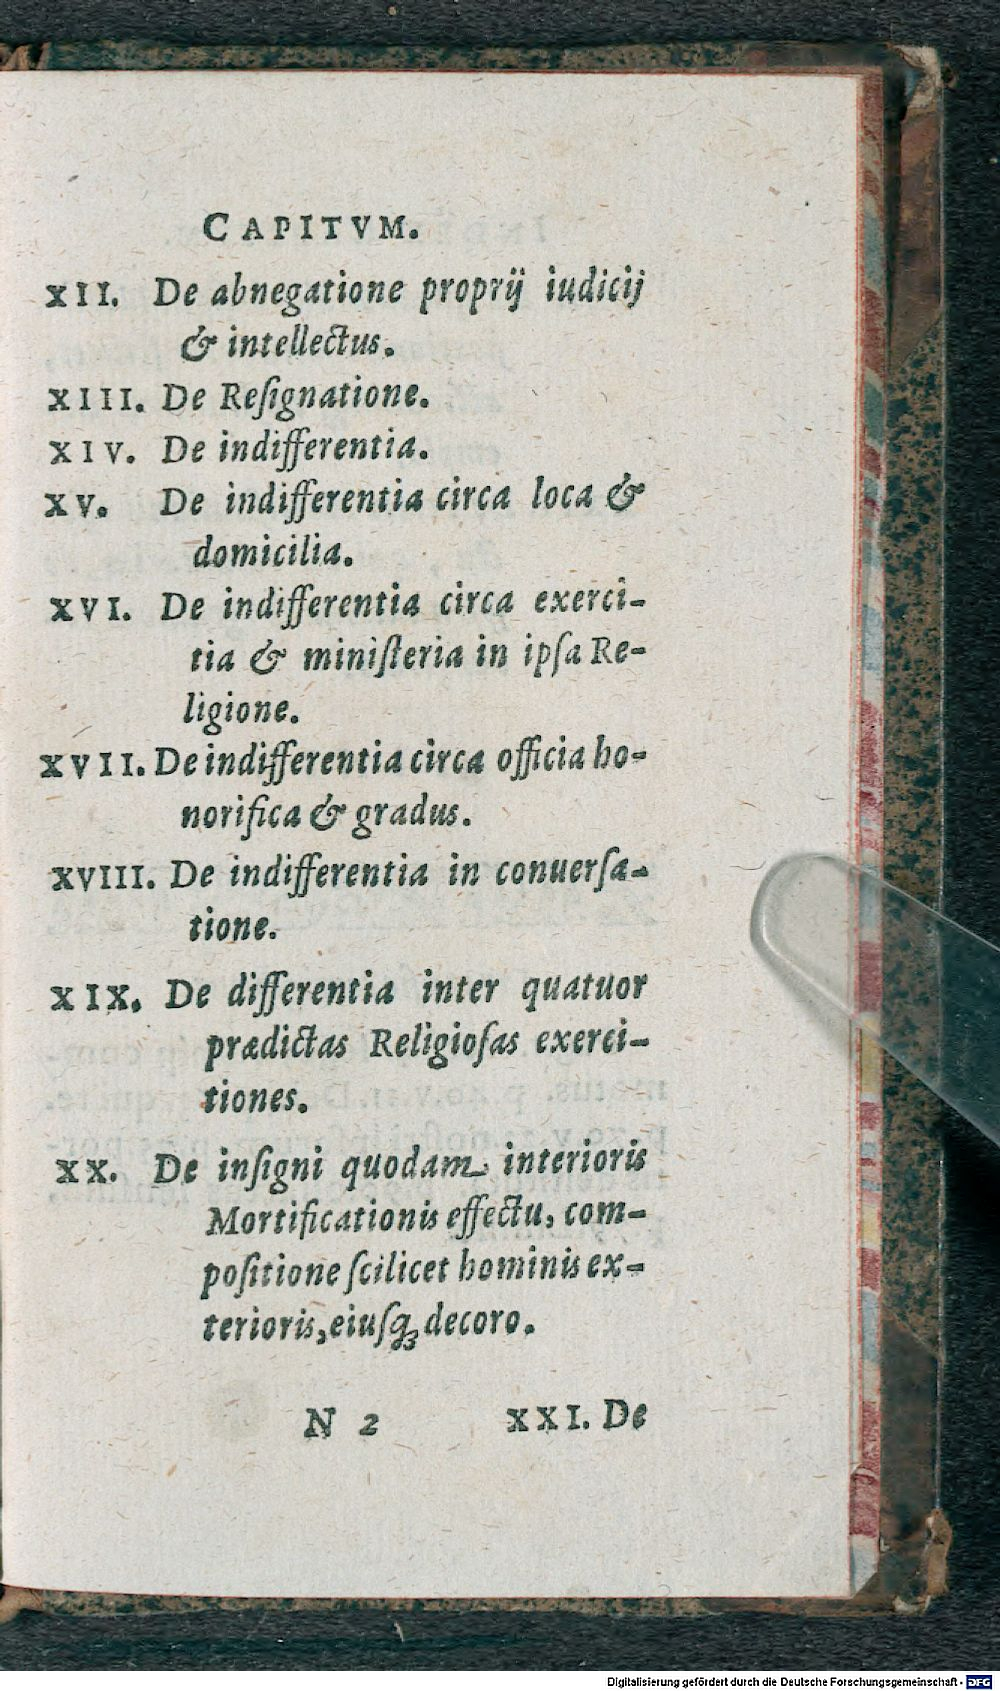 CAPITVM.
XII. De abnegatione proprij iudicij
& intellectus.
XIII. De Reſignatione.
XIV. De indifferentia.
XV. De indifferentia circa loca &
domicilia.
XVI. De indifferentia circa exerci-
tia & miniſteria in ipſa Re-
ligione.
XVII. De indifferentia circa officia ho-
norifica & gradus.
XVIII. De indifferentia in conuerſa-
tione.
XIX. De differentia inter quatuor
prædictas Religioſas exerci-
tiones.
XX. De inſigni quodam interioris
Mortificationis effectu, com-
poſitione ſcilicet hominis ex-
terioris, eiuſq́; decoro.
N 2 XXI. De
Digitalisierung gefördert durch die Deutsche Forschungsgemeinschaft - DFG